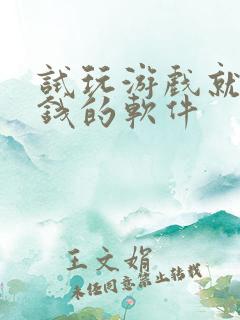 試玩游戲就
錢的軟件
王文娟
未经同意禁止转载